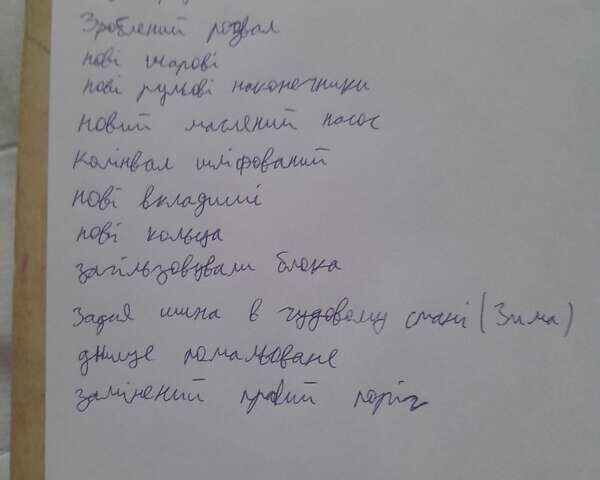 Зроблений розвал
нові шарові
нові рульові наконечники
новий масляний насос
Колінвал шліфований
нові вкладиші
нові кольца
загільзовували блока
Задня шина в чудовому стані (Зима)
днище помальоване
замінений правий поріг